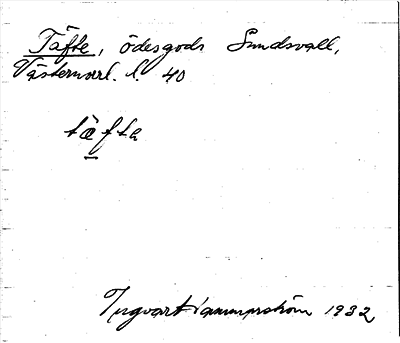 Täfte, ödesgods Sundsvall,
Västernorrl. l. 40
tæfta
Ingvar Hammarström 1932